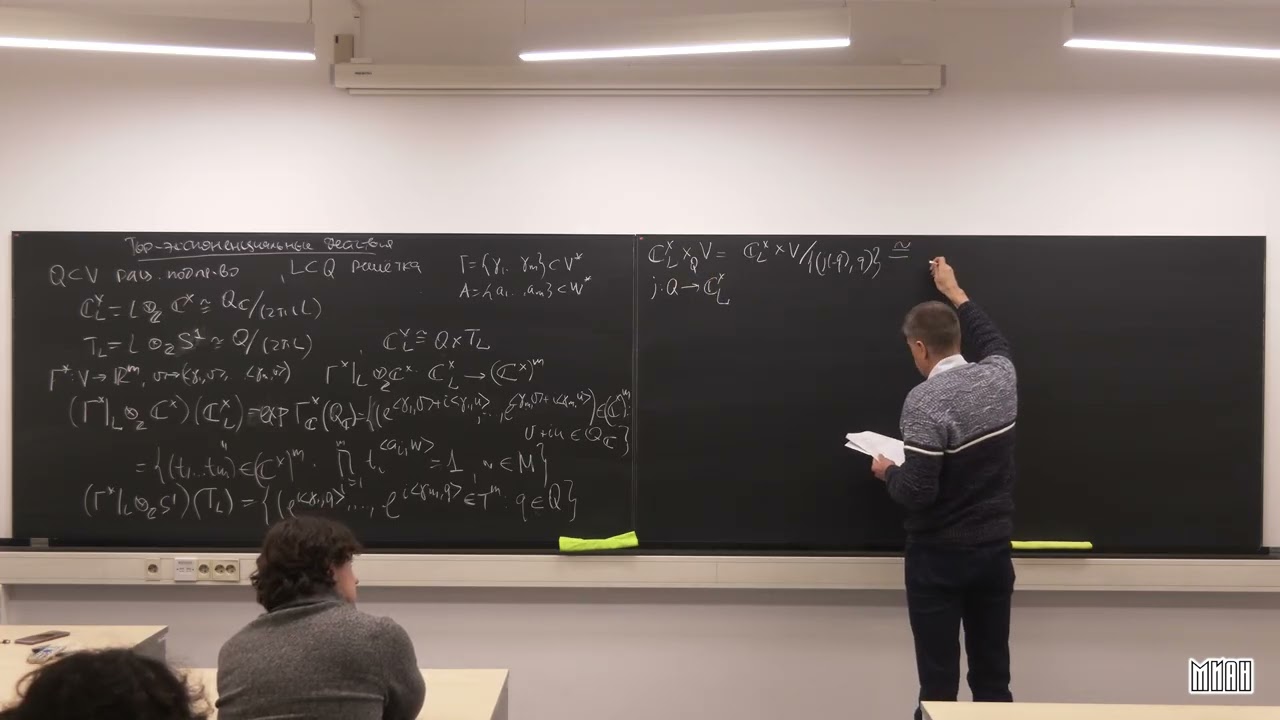 Тор-экспоненциальные действия
Q ⊂ V рац. подпр-во , L ⊂ Q решётка
Γ = {γ₁.. γₘ} ⊂ V*
A = {a₁..., aₘ} ⊂ W*
ℂ_L^× = L ⊗_ℤ ℂ^× ≅ Q_ℂ/(2πi L)
T_L = L ⊗_ℤ S¹ ≅ Q/(2π L) , ℂ_L^× ≅ Q × T_L
Γ*: V → ℝᵐ, v ↦ (⟨γ₁,v⟩, ... ⟨γₘ,v⟩) Γ*|_L ⊗_ℤ ℂ^×: ℂ_L^× → (ℂ^×)ᵐ
(Γ*|_L ⊗_ℤ ℂ^×)(ℂ_L^×) = exp Γ*_ℂ(Q_ℂ) = {(e^{⟨γ₁,v⟩+i⟨γ₁,u⟩}, ..., e^{⟨γₘ,v⟩+i⟨γₘ,u⟩}) ∈ (ℂ^×)ᵐ:
v + iu ∈ Q_ℂ}
= {(t₁...tₘ) ∈ (ℂ^×)ᵐ : ∏_{i=1}^m t_i^{⟨a_i,w⟩} = 1, w ∈ M}
(Γ*|_L ⊗_ℤ S¹)(T_L) = {(e^{i⟨γ₁,q⟩}, ..., e^{i⟨γₘ,q⟩}) ∈ Tᵐ : q ∈ Q}
ℂ_L^× ×_Q V = ℂ_L^× × V/{(j(-q), q)} ≅
j: Q → ℂ_L^×
МИАН